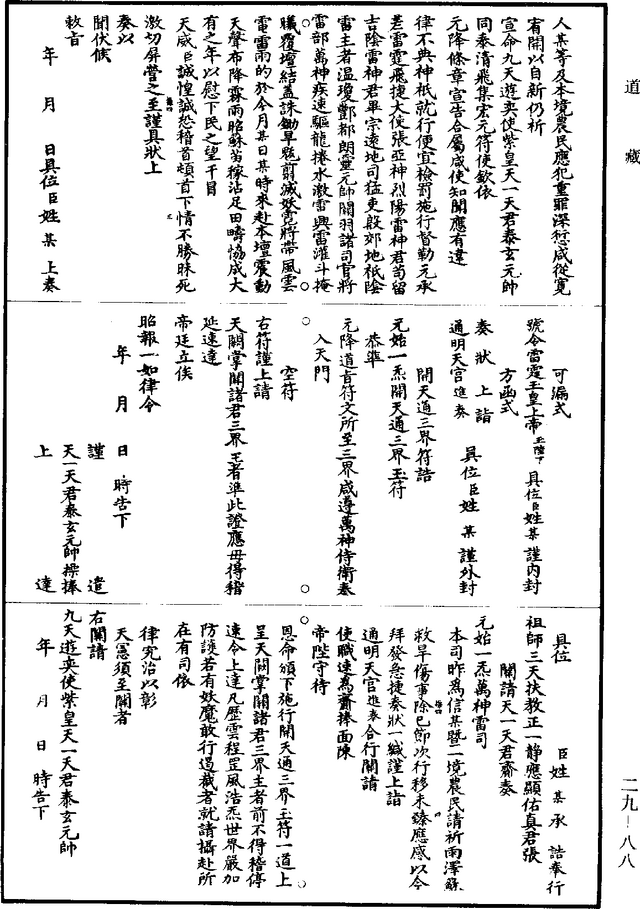 道藏
人某等及本境農民應犯重罪深愆咸從寬
宥開以自新仍祈
宣命九天遊奕使紫皇天一天君泰玄元帥
同泰清飛集宏元符使欽依
元降條章宣告合屬咸使知聞應有違
律不典神祇就行便宜檢罰施行督勒元承
差雷霆飛捷大使張亞神烈陽雷神君苟留
吉陰雷神君畢宗遠地司猛吏殷郊地祇陰
雷主者溫瓊酆都朗靈元帥關羽諸司官將
雷部萬神疾速驅龍捲水激雷興雷灌斗掩
曦覆壇結蓋誅鋤旱魃剪滅妖氛將帶風雲
電雷雨的於今月某日某時來赴本壇震動
天聲布降霖雨昭蘇苗稼沾足田疇協成大
有之年以慰下民之望干冒
天威臣誠惶誠恐稽首頓首下情不勝昧死
激切屏營之至謹具狀上
奏以
聞伏候
敕旨
年 月 日具位臣姓 某 上奏
可漏式
號令雷霆玉皇上帝玉陛下 具位臣姓某 謹內封
方函式
奏 狀 上 詣
通明天宮進奏 具位臣姓 某 謹外封
開天通三界符誥
元始一炁開天通三界玉符
恭準
元降道旨符文所至三界咸遵萬神侍衛奏
入天門
空符
右符謹上請
天闕掌關諸君三界主者準此證應毋得稽
延速達
帝廷立俟
昭報一如律令
年 月 日 時告下
謹 遣
天一天君泰玄元帥操捧
上 達
具位 臣姓 某 承 誥奉行
祖師三天扶教正一靜應顯佑真君張
關請天一天君齋奏
元始一炁萬神雷司
本司昨為信某暨一境農民請祈雨澤蘇
救旱傷事除已節次行移未臻應感以今
拜發急捷奏狀一緘謹上詣
通明天宮進奏合行關請
使職速為齋捧面陳
帝陛守待
恩命頒下施行開天通三界玉符一道上
呈天闕掌關諸君三界主者前不得稽停
速令上達凡歷雲程罡風浩炁世界嚴加
防護若有妖魔敢行遏截者就請攝赴所
在有司依
律究治以彰
天憲須至關者
右關請
九天遊奕使紫皇天一天君泰玄元帥
年 月 日 時告下
二九—八八